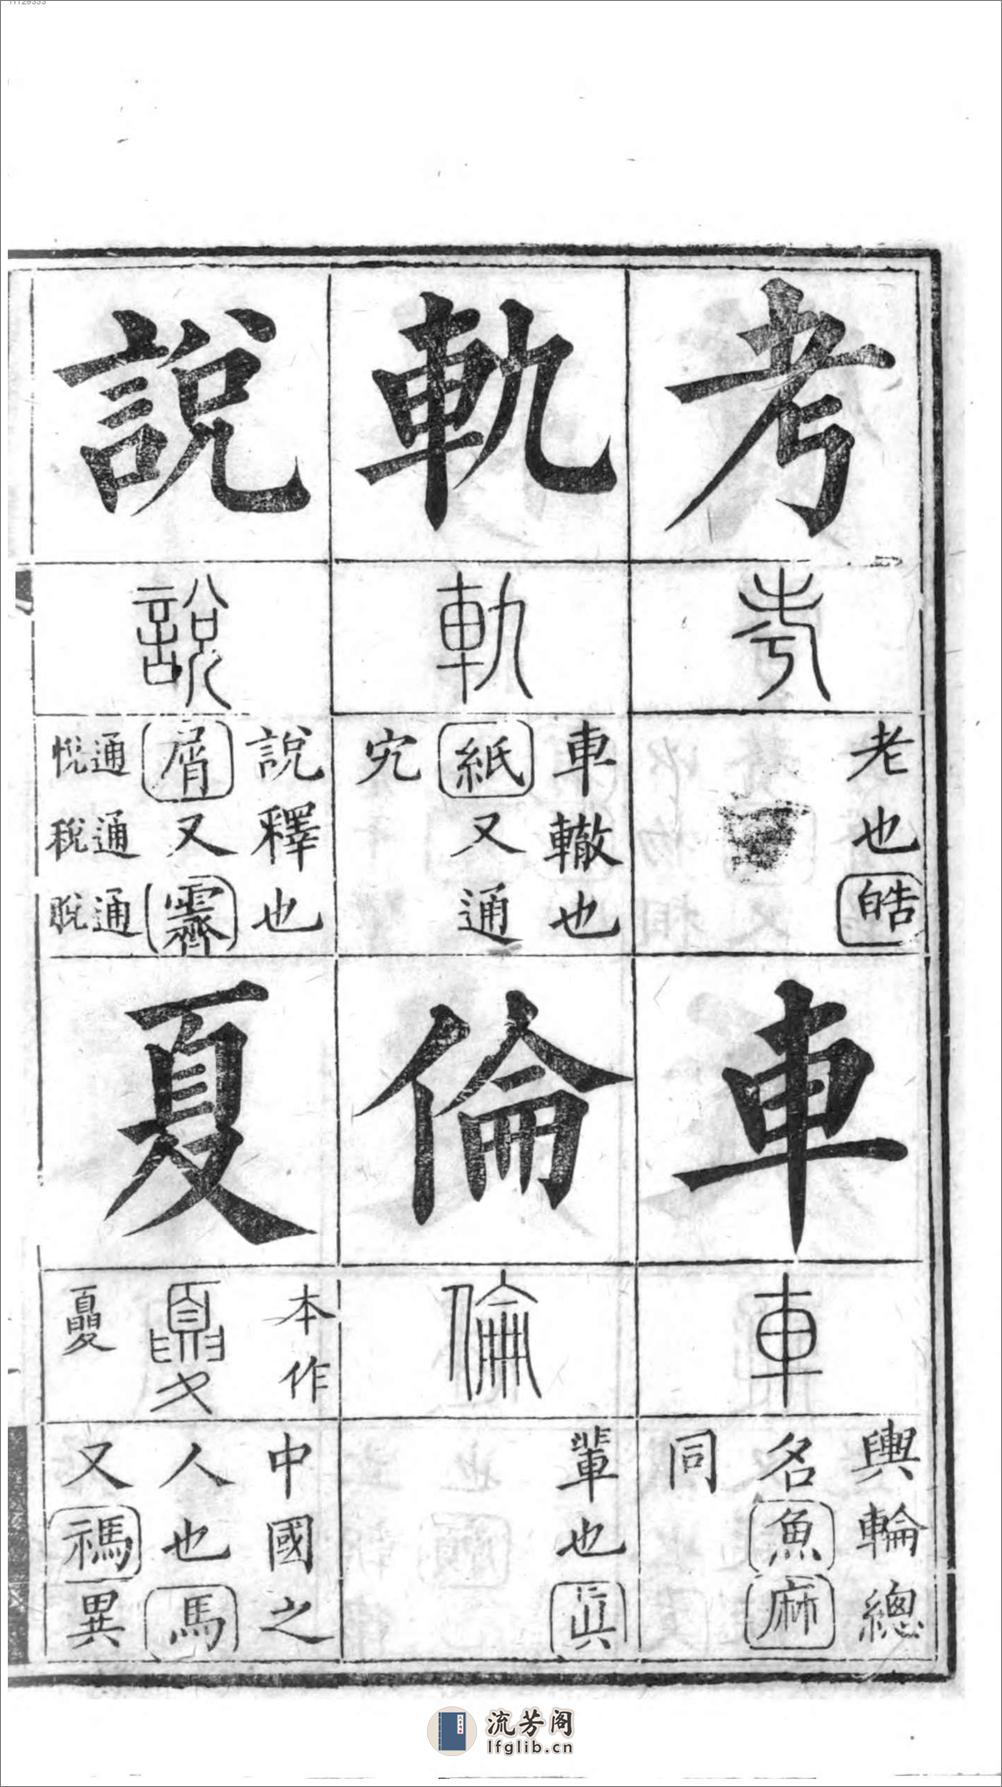 考
考
老也皓
車
車
輿輪總
名魚麻
同
軌
軌
車轍也
紙又通
宄
倫
倫
輩也眞
說
說
說釋也
屑又霽
通悅
通稅
通脫
夏
本作
夏
中國之
人也馬
又禡異
流芳阁
lfglib.cn